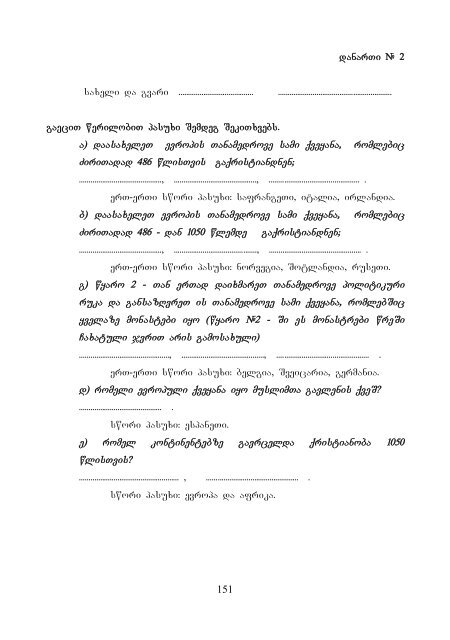 დანართი № 2
სახელი და გვარი ...................................... .........................................................
გაეცით წერილობით პასუხი შემდეგ შეკითხვებს.
ა) დაასახელეთ ევროპის თანამედროვე სამი ქვეყანა, რომლებიც
ძირითადად 486 წლისთვის გაქრისტიანდნენ;
.........................................., .........................................., .............................................. .
ერთ-ერთი სწორი პასუხი: საფრანგეთი, იტალია, ირლანდია.
ბ) დაასახელეთ ევროპის თანამედროვე სამი ქვეყანა, რომლებიც
ძირითადად 486 - დან 1050 წლემდე გაქრისტიანდნენ;
.........................................., .........................................., .............................................. .
ერთ-ერთი სწორი პასუხი: ნორვეგია, შოტლანდია, რუსეთი.
გ) წყარო 2 - თან ერთად დაიხმარეთ თანამედროვე პოლიტიკური
რუკა და განსაზღვრეთ ის თანამედროვე სამი ქვეყანა, რომლებშიც
ყველაზე მონასტები იყო (წყარო №2 - ში ეს მონასტრები წრეში
ჩახატული ჯვრით არის გამოსახული)
.............................................., .........................................., .............................................. .
ერთ-ერთი სწორი პასუხი: ბელგია, შვეიცარია, გერმანია.
დ) რომელი ევროპული ქვეყანა იყო მუსლიმთა გავლენის ქვეშ?
.......................................... .
სწორი პასუხი: ესპანეთი.
ე) რომელ კონტინენტებზე გავრცელდა ქრისტიანობა 1050
წლისთვის?
.................................................. , .............................................. .
სწორი პასუხი: ევროპა და აფრიკა.
151